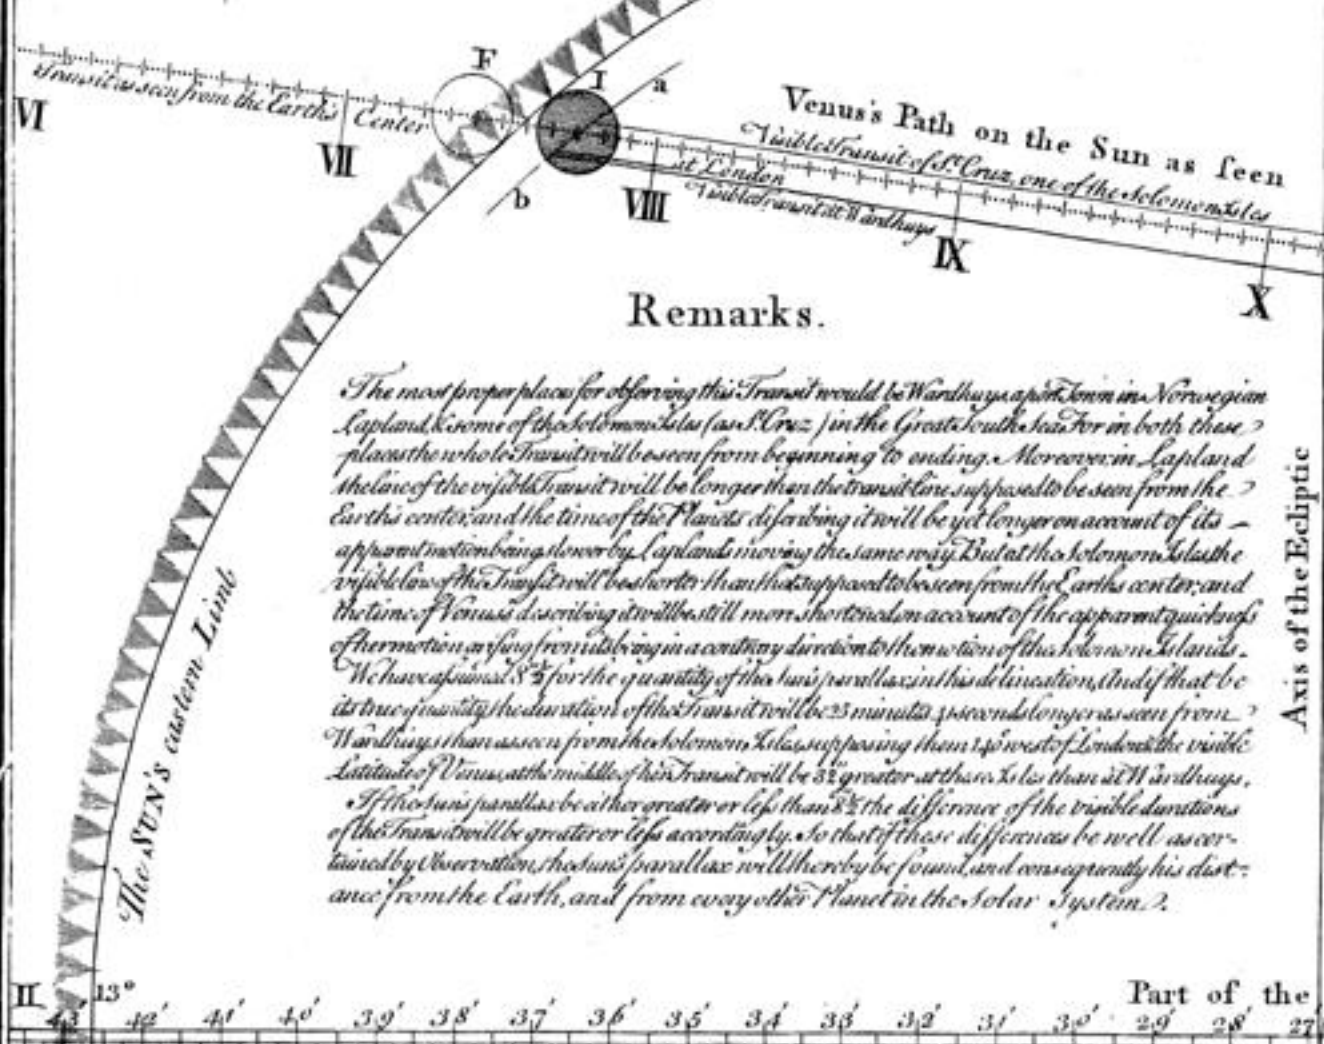 F
I
a
Transit as seen from the Earth's Center
Venus's Path on the Sun as ſeen
Visible Transit of St. Cruz, one of the Solomon Isles
VI
VII
at London
Visible Transit at Wardhuys
b
VIII
IX
X
Remarks.
The most proper places for obſerving this Transit would be Wardhuys a port Town in Norwegian
Lapland, & some of the Solomon Isles (as St. Cruz) in the Great South Sea. For in both these
places the whole Transit will be seen from beginning to ending. Moreover, in Lapland
the line of the viſible Transit will be longer than the transit line supposed to be seen from the
Earth's center, and the time of the Planet's diſcribing it will be yet longer on account of its
apparent motion being slower by Lapland's moving the same way. But at the Solomon Isles the
viſible line of the Tranſit will be shorter than that supposed to be seen from the Earths center; and
the time of Venus's describing it will be still more shortened on account of the apparent quickneſs
of her motion ariſing from its being in a contrary direction to the motion of the Solomon Islands.
We have aſsumed 8"½ for the quantity of the Sun's parallax in this delineation, And if that be
its true quantity, the duration of the Transit will be 23 minutes seconds longer as seen from
Wardhuys than as seen from the Solomon Isles, supposing them 140° west of London & the visible
Latitude of Venus, at the middle of her Transit will be 32" greater at these Isles than at Wardhuys.
If the Sun's parallax be either greater or leſs than 8"½ the difference of the visible durations
of the Transit will be greater or leſs accordingly. So that if these differences be well ascer-
tained by Observation, the Sun's parallax will thereby be found, and consequently his dist-
ance from the Earth, and from every other Planet in the Solar System.
The SUN's eastern Limb
Axis of the Ecliptic
II
13°
Part of the
43' 42' 41' 40' 39' 38' 37' 36' 35' 34' 33' 32' 31' 30' 29' 28' 27